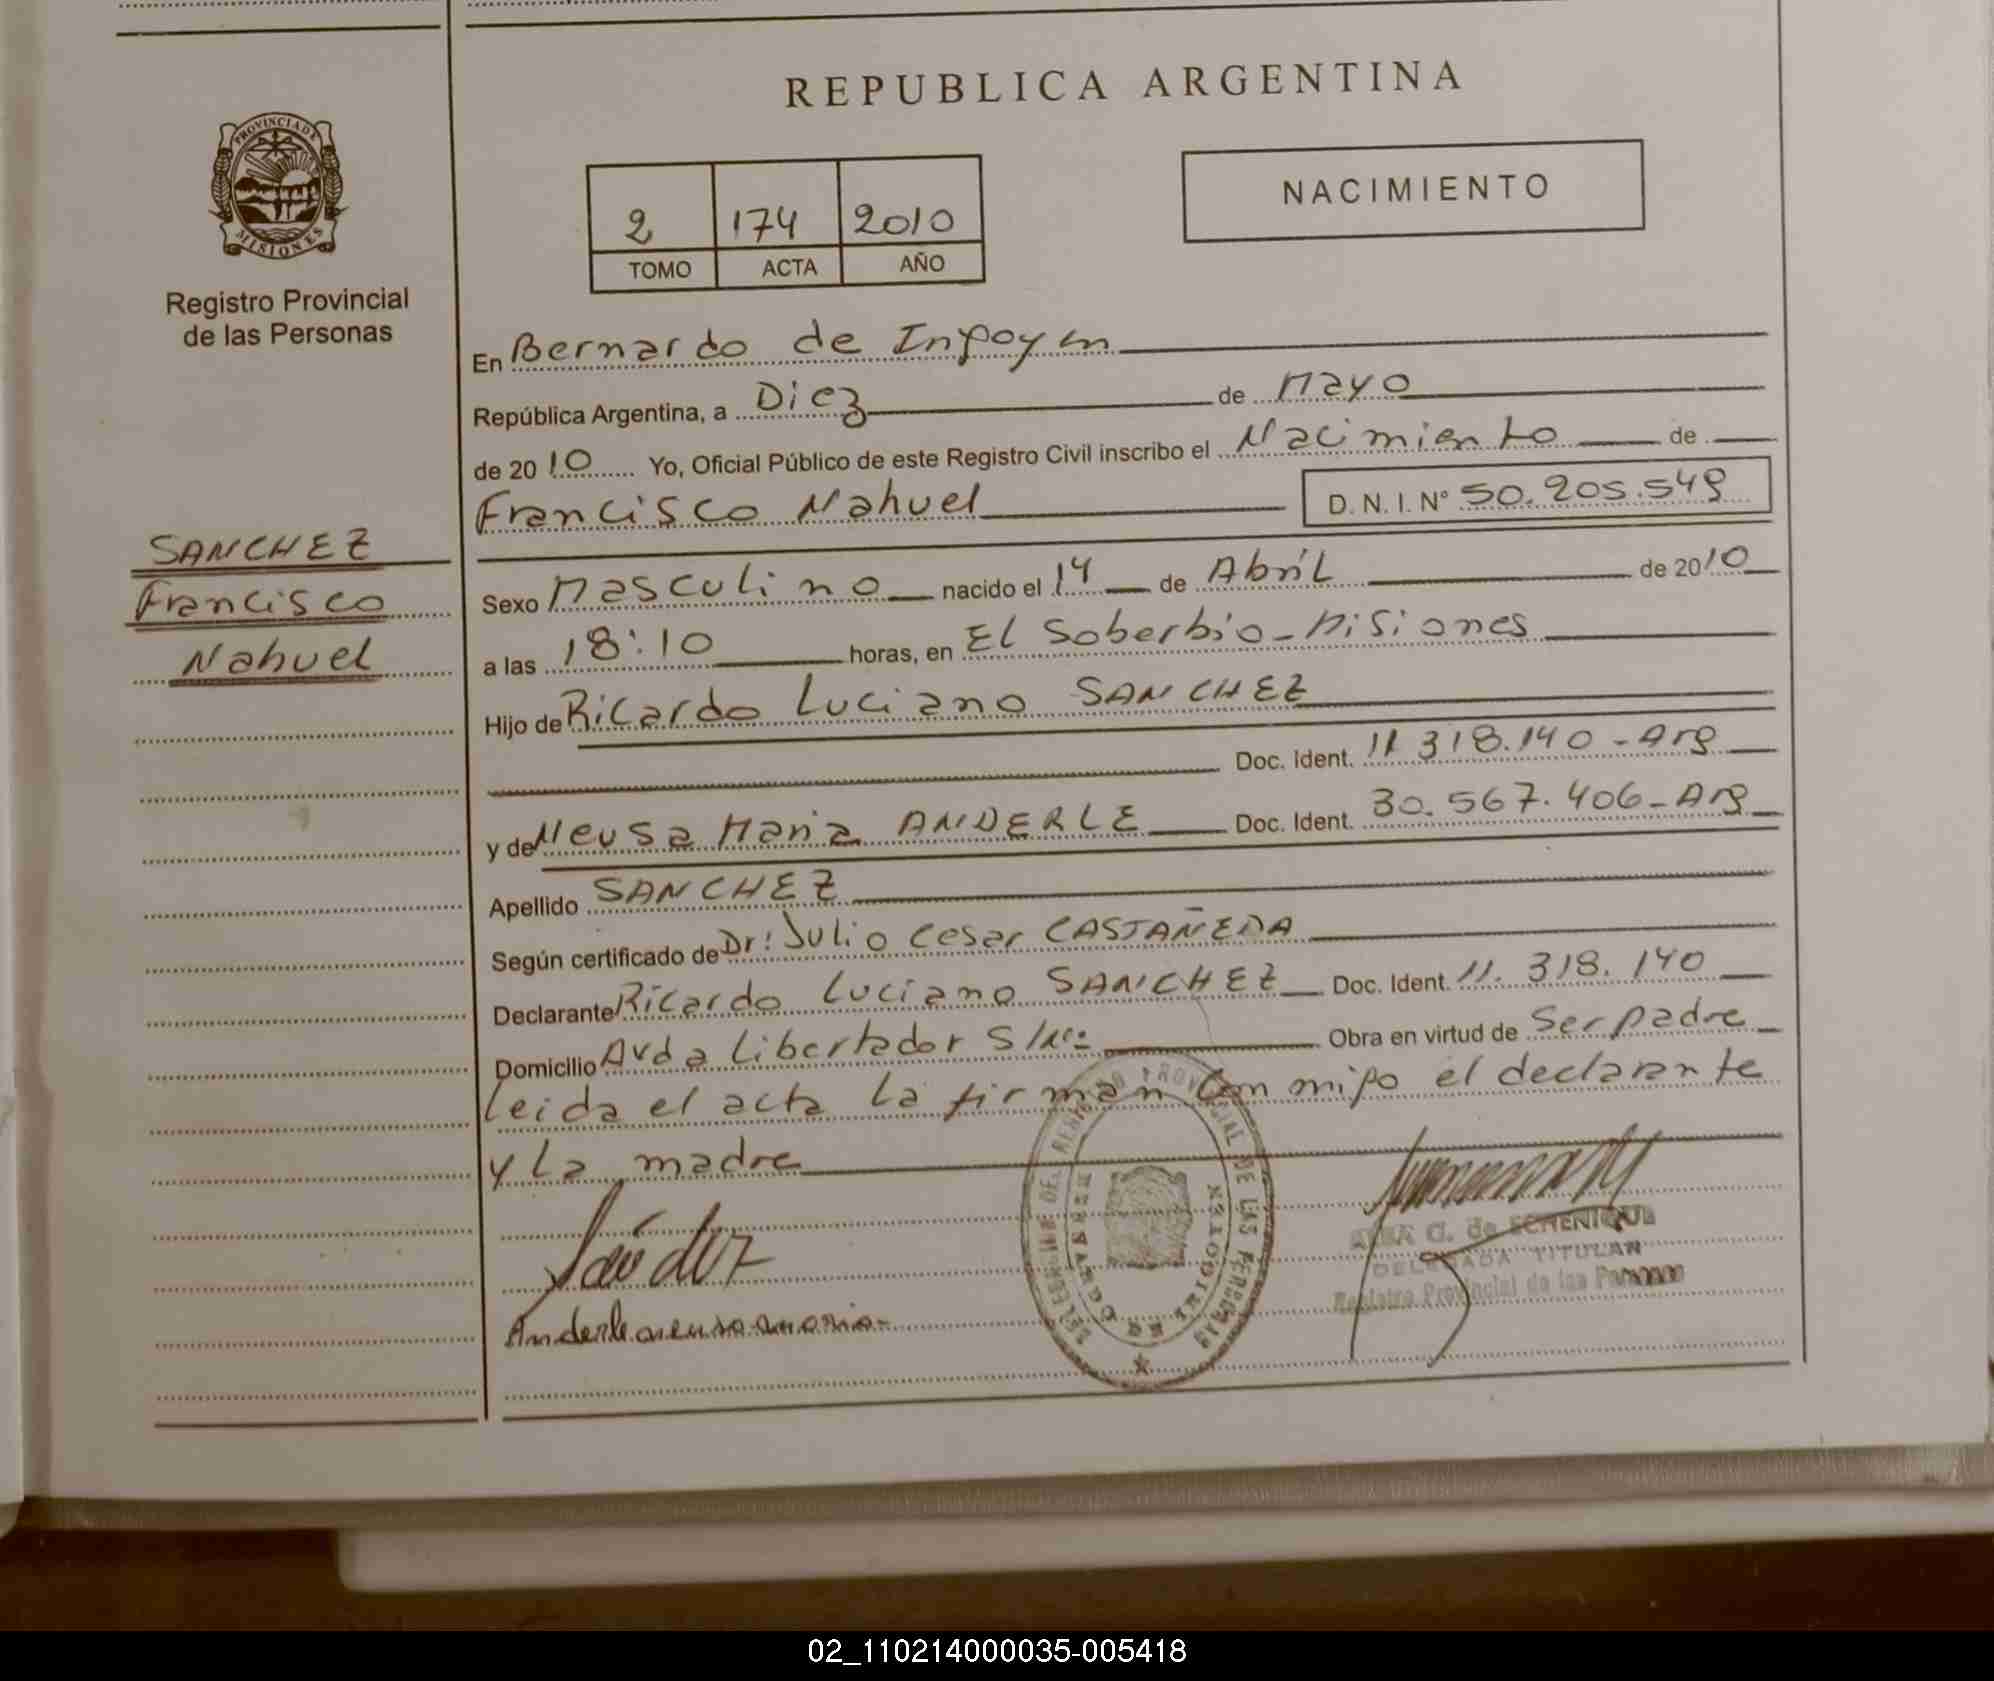 REPUBLICA ARGENTINA
PROVINCIA DE
MISIONES
Registro Provincial
de las Personas
2 174 2010
TOMO ACTA AÑO
NACIMIENTO
En Bernardo de Irigoyen
República Argentina, a Diez de Mayo
de 2010 Yo, Oficial Público de este Registro Civil inscribo el Nacimiento de
Francisco Nahuel D. N. I. N° 50.205.549
SANCHEZ
Francisco
Nahuel
Sexo Masculino nacido el 14 de Abril de 2010
a las 18:10 horas, en El Soberbio - Misiones
Hijo de Ricardo Luciano SANCHEZ
Doc. Ident. 11.318.140 - Arg
y de Neusa Maria ANDERLE Doc. Ident. 30.567.406 - Arg
Apellido SANCHEZ
Según certificado de Dr: Julio Cesar CASTAÑEDA
Declarante Ricardo Luciano SANCHEZ Doc. Ident. 11.318.140
Domicilio Avda Libertador S/Nº: Obra en virtud de Ser padre
Leida el acta la firman con migo el declarante
y La madre
Anderle neusa maria
G. de ECHENIQUE
DELEGADA TITULAR
Registro Provincial de las Personas
02_110214000035-005418